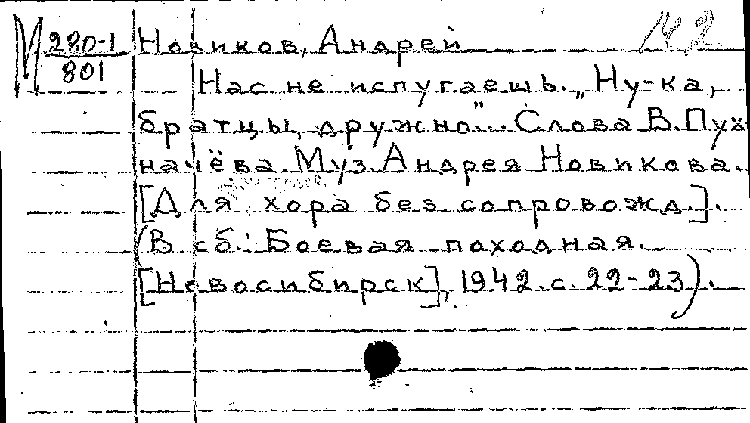 М 280-1 Новиков, Андрей М2
801
Нас не испугаешь. „Ну-ка,
братцы, дружно". Слова В. Пух-
начёва. Муз. Андрея Новикова.
[Для хора без сопровожд.].
(В сб.: Боевая походная.
[Новосибирск], 1942. с. 22-23).